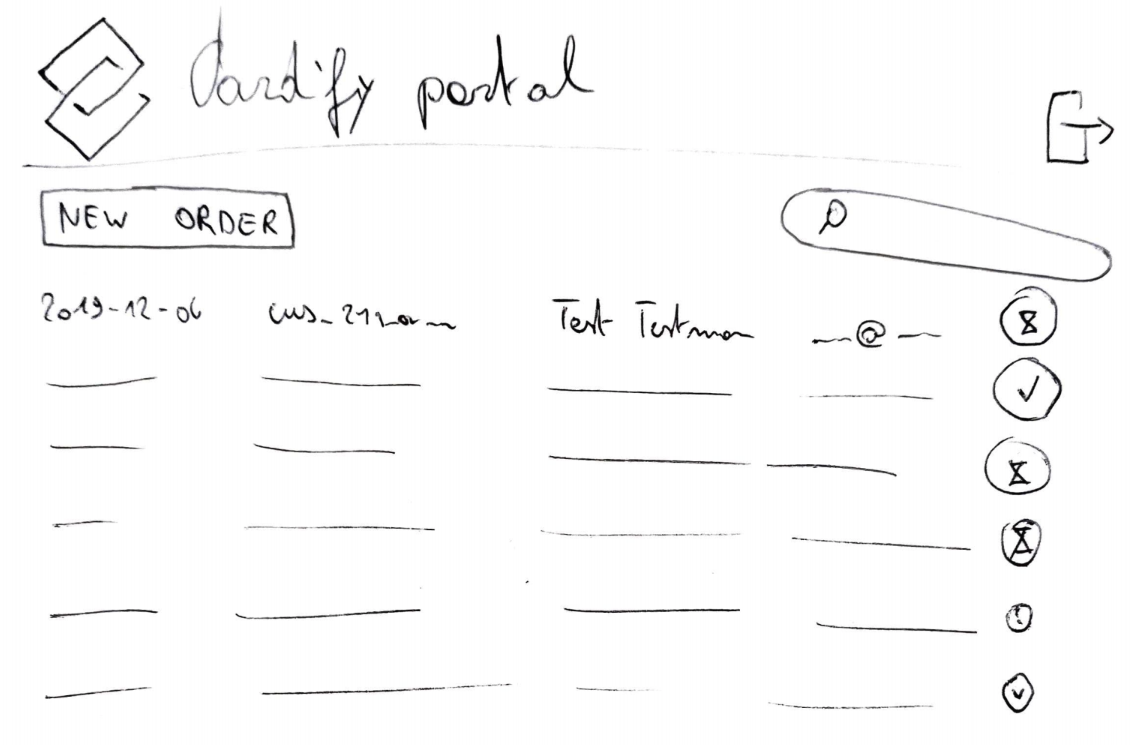 Vardify portal
NEW ORDER
2019-12-06 Test Testman @